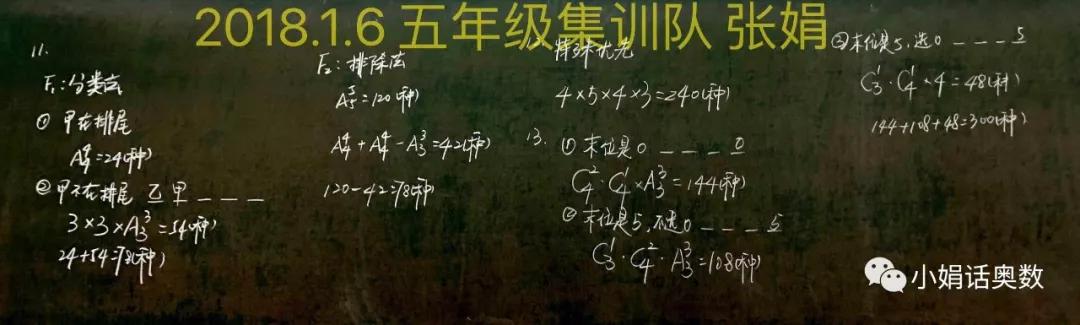 2018.1.6 五年级集训队 张娟
11.
F₁:分类法
① 甲在排尾
A₄⁴=24(种)
② 甲不在排尾 乙 甲 _ _ _
3×3×A₃³=54(种)
24+54=78(种)
F₂:排除法
A₅⁵=120(种)
A₄⁴+A₄⁴-A₃³=42(种)
120-42=78(种)
12. 特殊优先
4×5×4×3=240(种)
13. ① 末位是0 _ _ _ 0
C₄²·C₄¹×A₃³=144(种)
② 末位是5,不选0 _ _ _ 5
C₃¹·C₄²·A₃³=108(种)
③ 末位是5,选0 _ _ _ 5
C₃¹·C₄¹×4=48(种)
144+108+48=300(种)
小娟话奥数